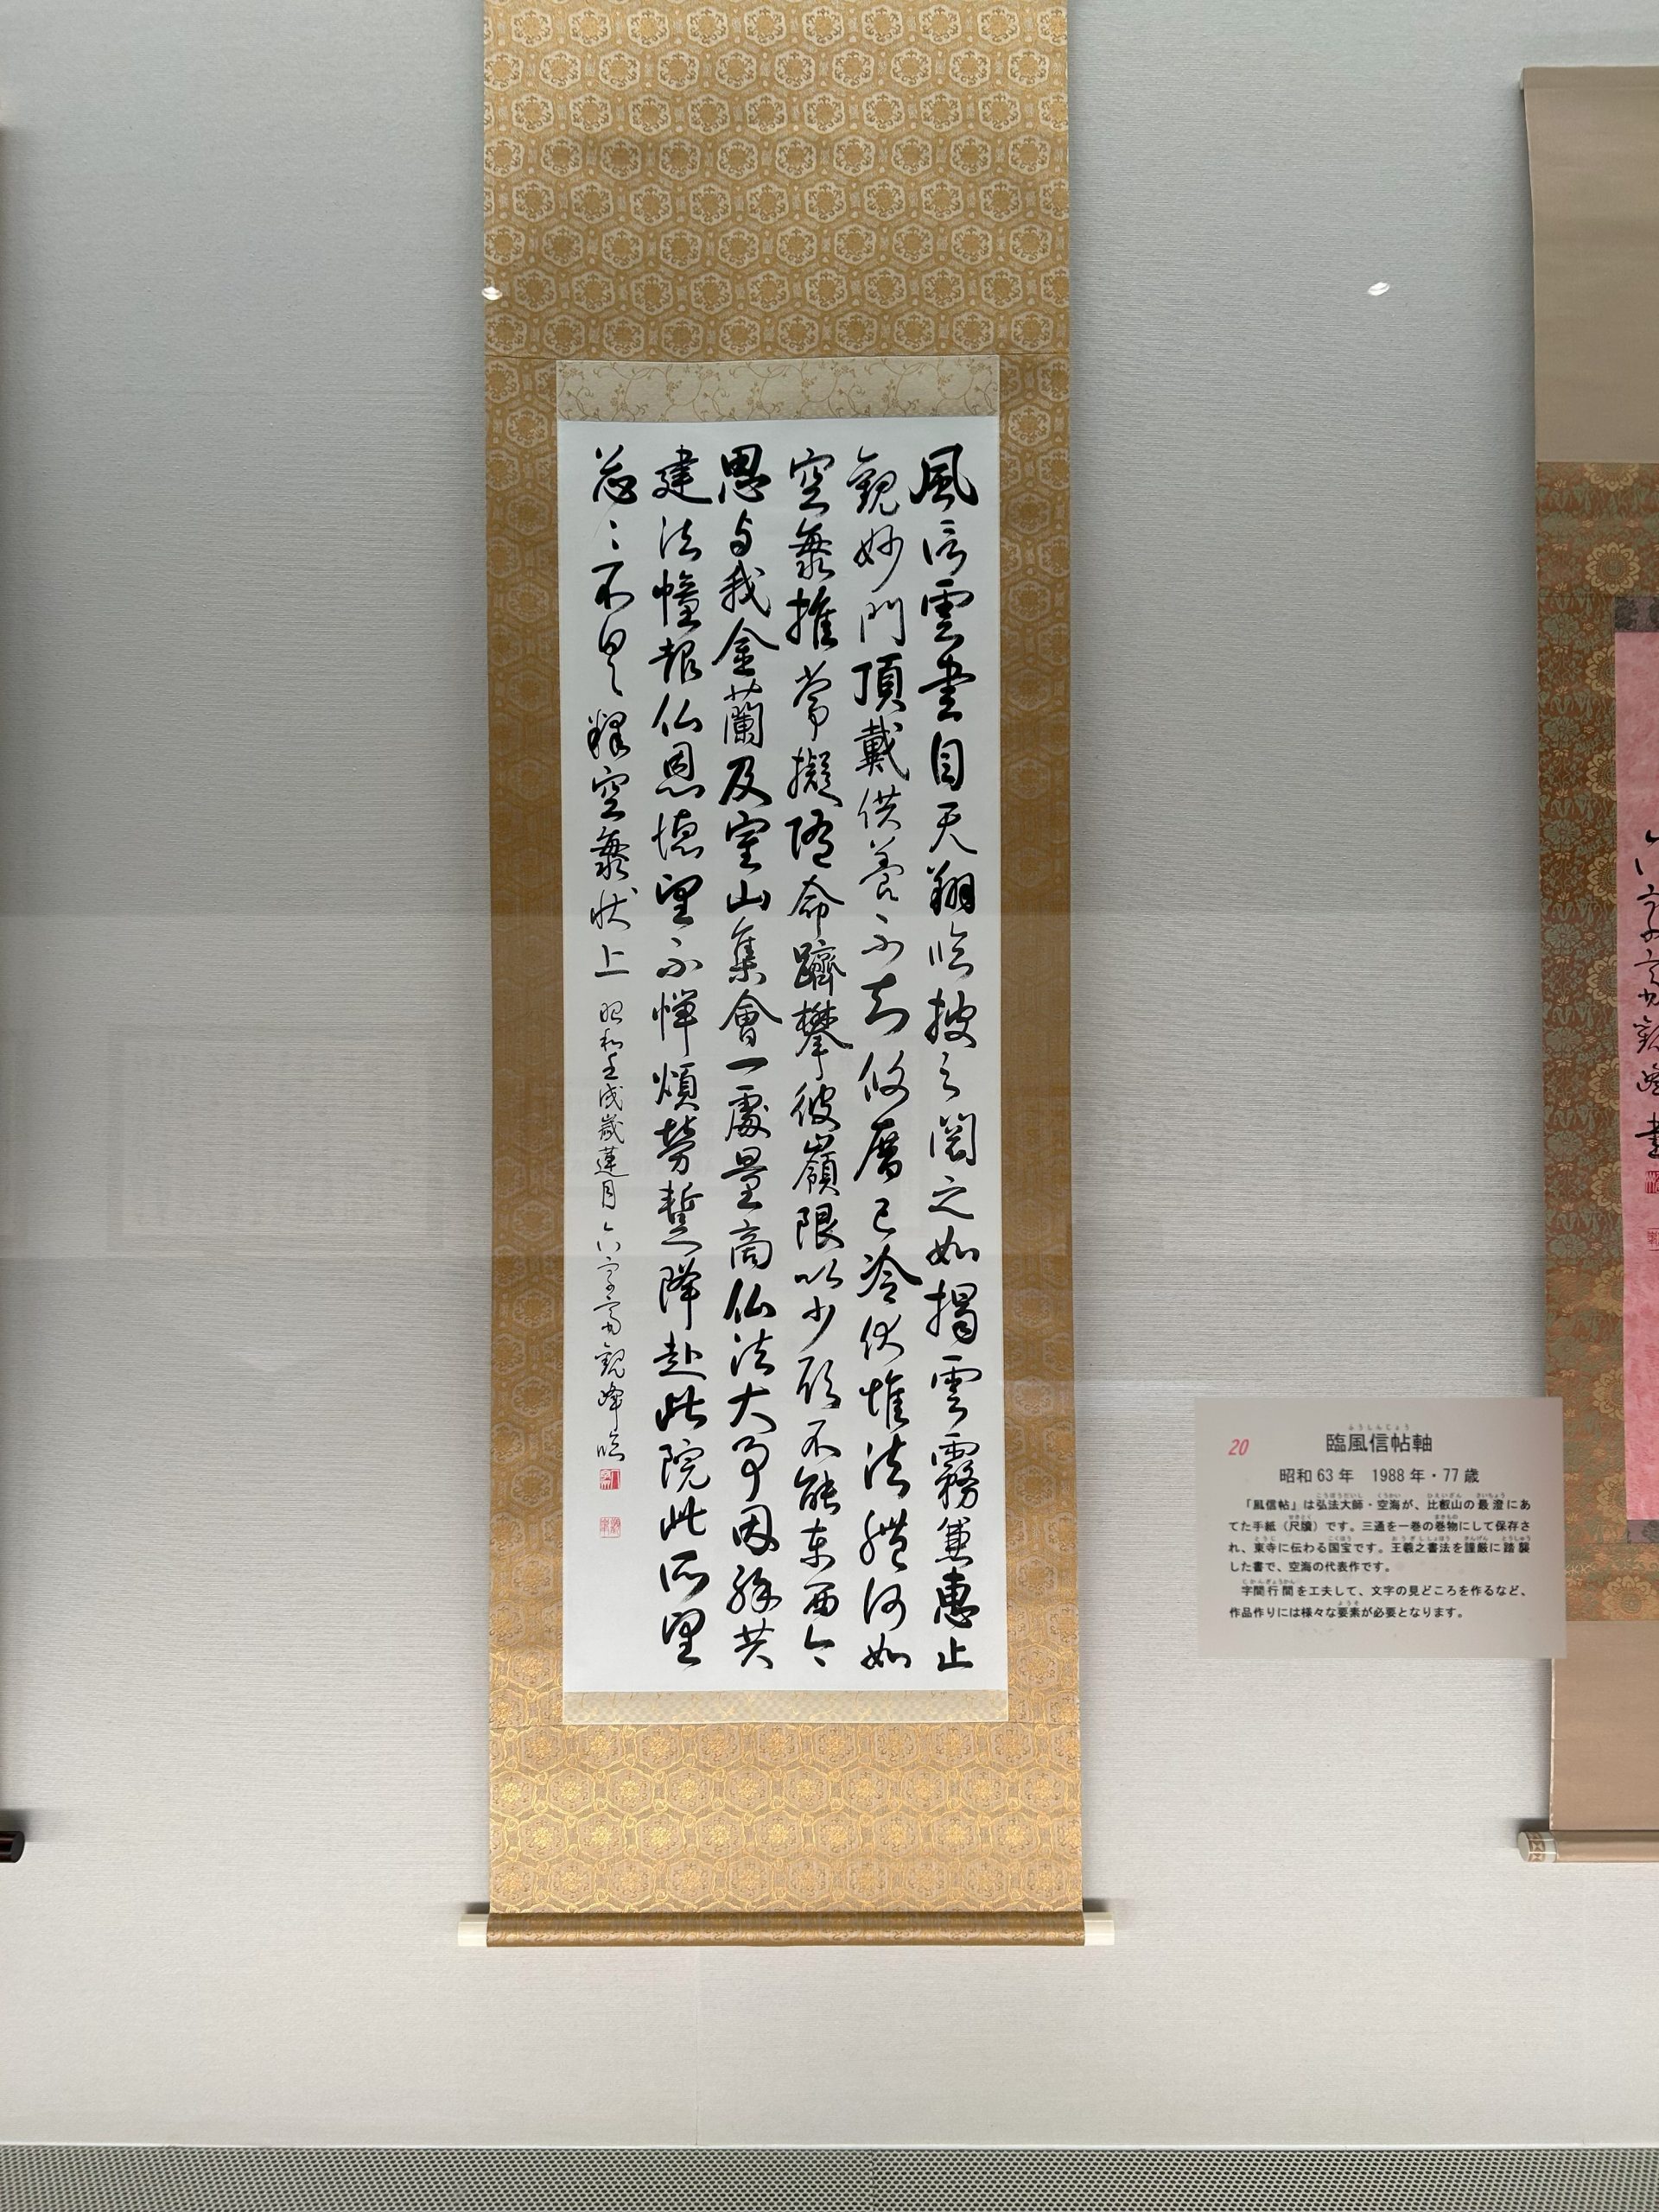 風信雲書自天翔臨披之閲之如揭雲霧兼恵止
観妙門頂戴供養不知攸厝已冷伏惟法體何如
空海推常擬随命躋攀彼嶺限以少願不能東西今
思与我金蘭及室山集會一處量商仏法大事因縁共
建法幢報仏恩徳望不憚煩勞蹔降赴此院此所望
忩々不具釋空海状上 昭和壬戌歳蓮月 観峰臨
20
臨風信帖軸
昭和63年 1988年・77歳
「風信帖」は弘法大師・空海が、比叡山の最澄にあ
てた手紙（尺牘）です。三通を一巻の巻物にして保存さ
れ、東寺に伝わる国宝です。王羲之書法を謹厳に踏襲
した書で、空海の代表作です。
字間行間を工夫して、文字の見どころを作るなど、
作品作りには様々な要素が必要となります。